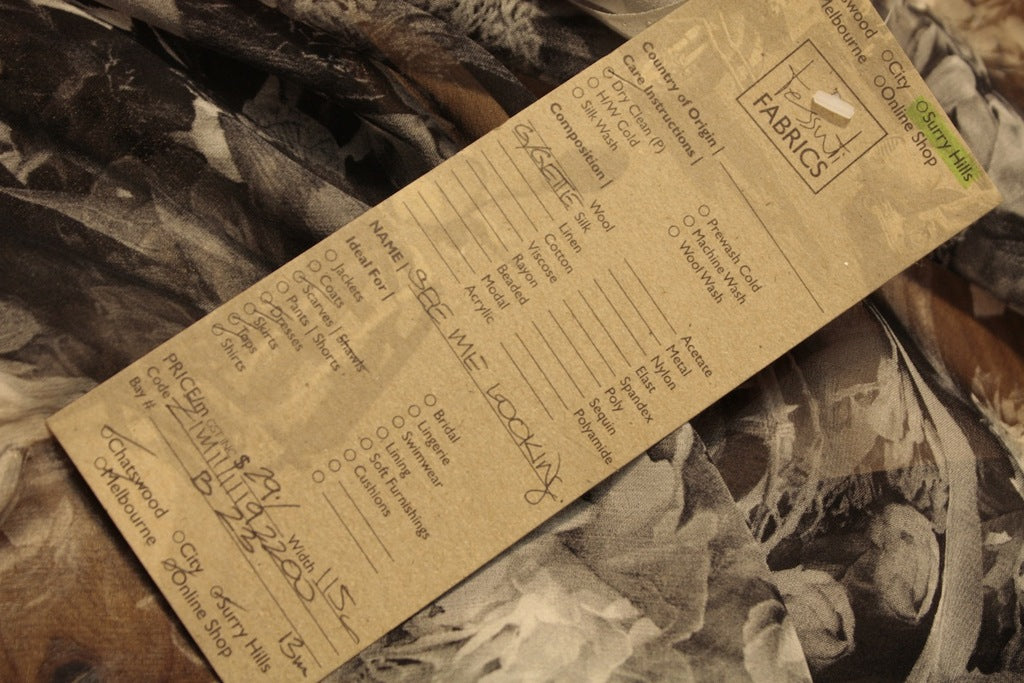 FABRICS
Chatswood
Melbourne
City
Online Shop
Surry Hills
Country of Origin |
Care Instructions |
Dry Clean (P)
H/W Cold
Silk Wash
Prewash Cold
Machine Wash
Wool Wash
Composition |
Wool
Silk
Linen
Cotton
Viscose
Rayon
Beaded
Modal
Acrylic
Acetate
Metal
Nylon
Elast
Spandex
Poly
Sequin
Polyamide
NAME | SEE ME LOOKING
Ideal For |
Jackets
Coats
Scarves | Shawls
Pants | Shorts
Dresses
Skirts
Tops
Shirts
Bridal
Lingerie
Swimwear
Lining
Soft Furnishings
Cushions
PRICE/m $ 29/ Width 115
Code
Bay # B 23 13m
Chatswood
Melbourne
City
Online Shop
Surry Hills